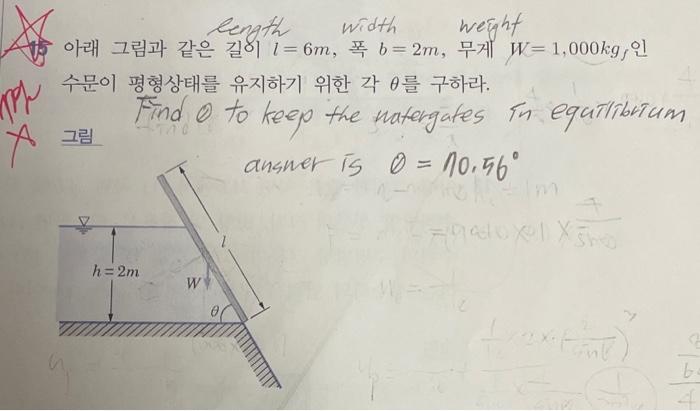 length width weight
15 아래 그림과 같은 길이 l = 6m, 폭 b = 2m, 무게 W = 1,000kgf인
수문이 평형상태를 유지하기 위한 각 θ를 구하라.
Find θ to keep the watergates in equilibrium
그림
answer is θ = 70.56°
l
h = 2m
W
θ